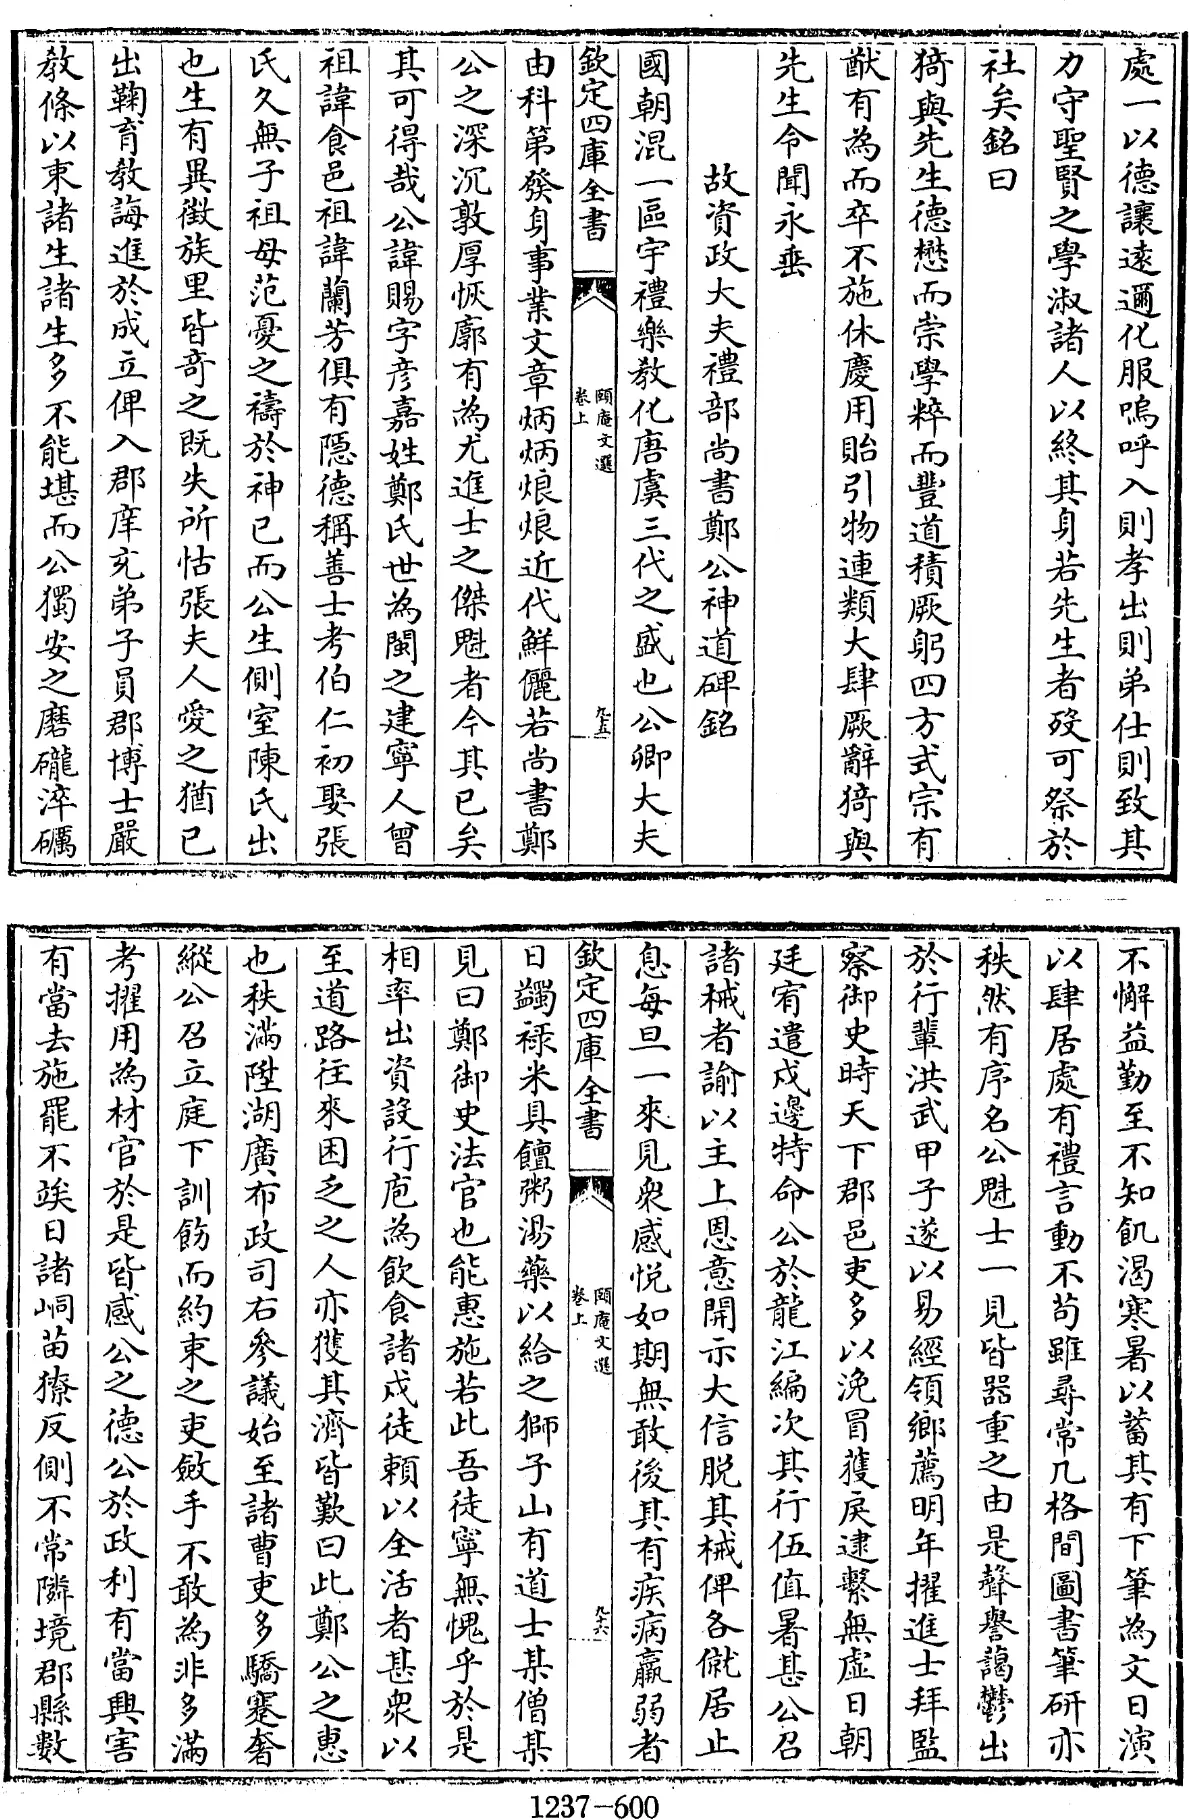 處一以德讓遠邇化服嗚呼入則孝出則弟仕則致其
力守聖賢之學淑諸人以終其身若先生者歿可祭於
社矣銘曰
猗與先生德懋而崇學粹而豐道積厥躬四方式宗有
猷有為而卒不施休慶用貽引物連類大肆厥辭猗與
先生令聞永垂
故資政大夫禮部尚書鄭公神道碑銘
國朝混一區宇禮樂教化唐虞三代之盛也公卿大夫
欽定四庫全書
頤庵文選
卷上
九五
由科第發身事業文章炳炳烺烺近代鮮儷若尚書鄭
公之深沉敦厚恢廓有為尤進士之傑魁者今其已矣
其可得哉公諱賜字彥嘉姓鄭氏世為閩之建寧人曾
祖諱食邑祖諱蘭芳俱有隱德稱善士考伯仁初娶張
氏久無子祖母范憂之禱於神已而公生側室陳氏出
也生有異徵族里皆奇之既失所怙張夫人愛之猶已
出鞠育教誨進於成立俾入郡庠充弟子員郡博士嚴
教條以束諸生諸生多不能堪而公獨安之磨礲淬礪
不懈益勤至不知飢渴寒暑以蓄其有下筆為文日演
以肆居處有禮言動不苟雖尋常几格間圖書筆研亦
秩然有序名公魁士一見皆器重之由是聲譽藹鬱出
於行輩洪武甲子遂以易經領鄉薦明年擢進士拜監
察御史時天下郡邑吏多以浼冒獲戾逮繫無虛日朝
廷宥遣戍邊特命公於龍江編次其行伍值暑甚公召
諸械者諭以主上恩意開示大信脫其械俾各僦居止
息每旦一來見衆感悅如期無敢後其有疾病羸弱者
欽定四庫全書
頤庵文選
卷上
九六
日蠲祿米具饘粥湯藥以給之獅子山有道士某僧某
見曰鄭御史法官也能惠施若此吾徒寧無愧乎於是
相率出資設行庖為飲食諸戍徒賴以全活者甚衆以
至道路往來困乏之人亦獲其濟皆歎曰此鄭公之惠
也秩滿陞湖廣布政司右參議始至諸曹吏多驕蹇奢
縱公召立庭下訓飭而約束之吏斂手不敢為非多滿
考擢用為材官於是皆感公之德公於政利有當興害
有當去施罷不竢日諸峒苗獠反側不常隣境郡縣數
1237-600